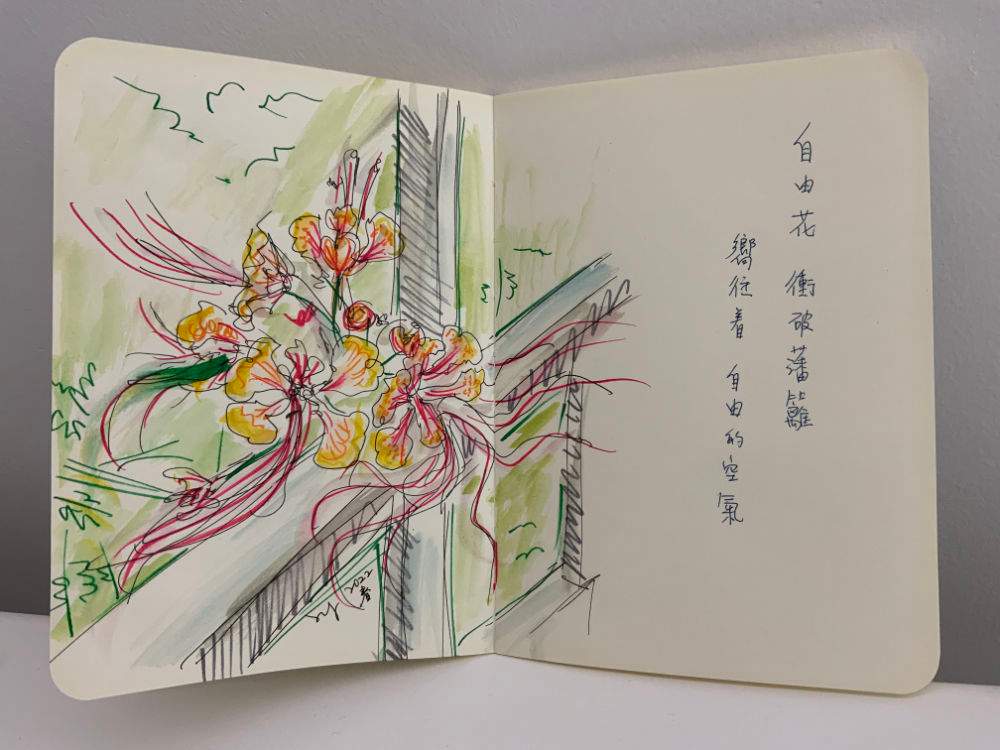 自由花 衝破藩籬
嚮往着 自由的空氣
2022
春